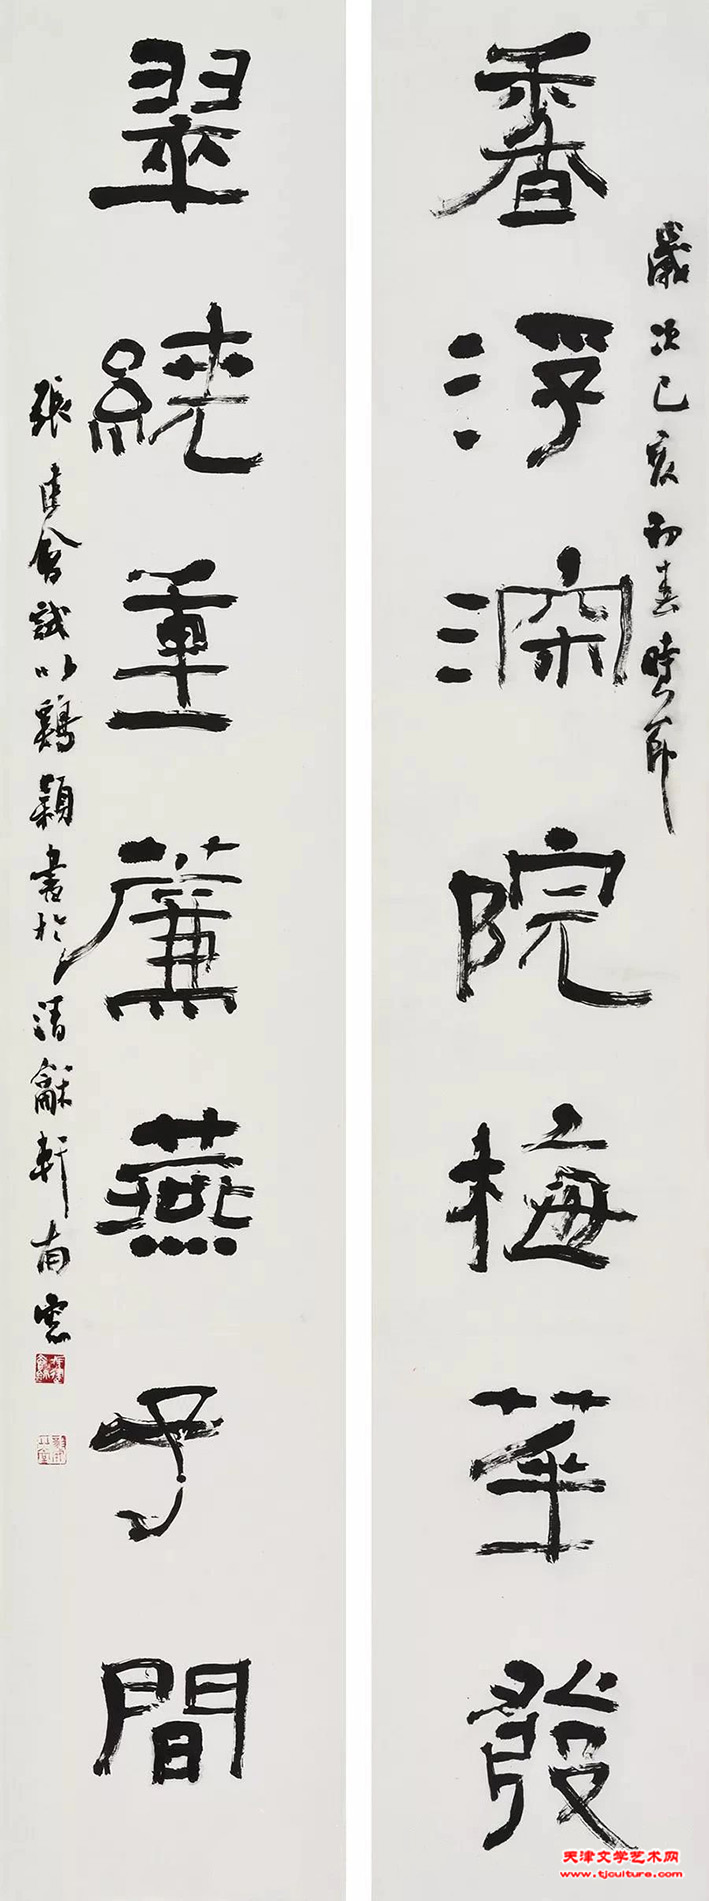 歲次己亥初春時節
香浮深院梅華發
翠繞重簾燕子間
張建會試以鷄穎書於清龢軒南窗
天津文学艺术网
www.tjculture.com